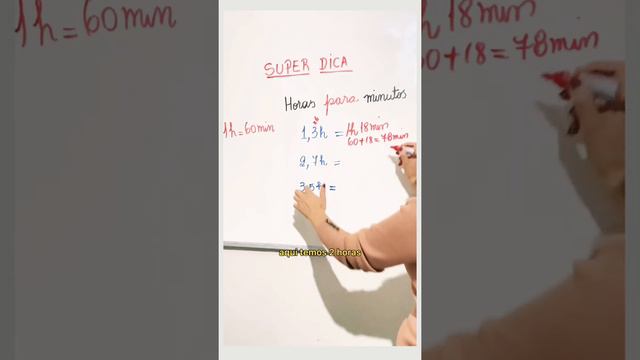 SUPER DICA
Horas para minutos
1h = 60min
1,3h = 1h 18min
60+18 = 78min
2,7h =
3,5h =
aqui temos 2 horas
1h = 60min
18min
60+18 = 78min